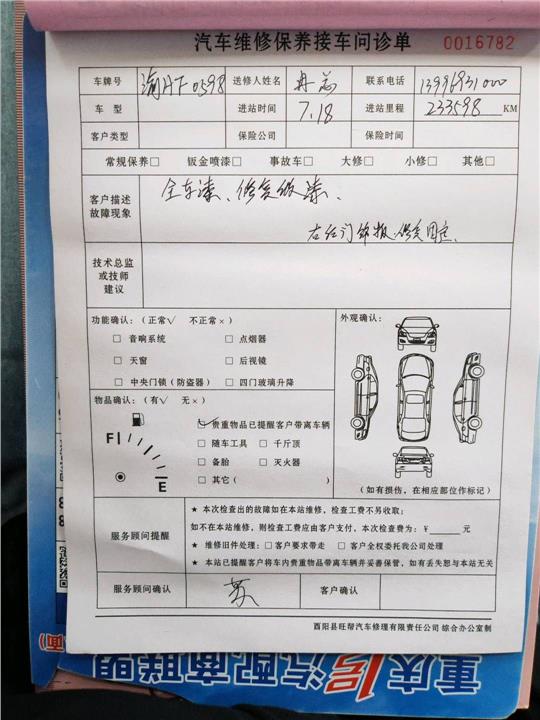 汽车维修保养接车问诊单 0016782
车牌号 渝HF0598 送修人姓名 冉 联系电话 13996931000
车 型 进站时间 7.18 进站里程 233598 KM
客户类型 保险公司 保险时间
常规保养□ 钣金喷漆□ 事故车□ 大修□ 小修□ 其他□
客户描述
故障现象
全车漆、修复做漆、
右 门饰板 修复固定.
技术总监
或技师
建议
功能确认：(正常√ 不正常×)
□ 音响系统 □ 点烟器
□ 天窗 □ 后视镜
□ 中央门锁（防盗器） □ 四门玻璃升降
外观确认：
物品确认：(有√ 无×)
F E
☑ 贵重物品已提醒客户带离车辆
□ 随车工具 □ 千斤顶
□ 备胎 □ 灭火器
□ 其它( )
（如有损伤，在相应部位作标记）
服务顾问提醒
★ 本次检查出的故障如在本站维修，检查工费不另收取；
如不在本站维修，则检查工费应由客户支付，本次检查费为：¥ 元
★ 维修旧件处理：□ 客户要求带走 □ 客户全权委托我公司处理
★ 本站已提醒客户将车内贵重物品带离车辆并妥善保管，如有丢失恕与本站无关
服务顾问确认 客户确认
酉阳县旺帮汽车修理有限责任公司 综合办公室制
重庆1号汽配商联盟